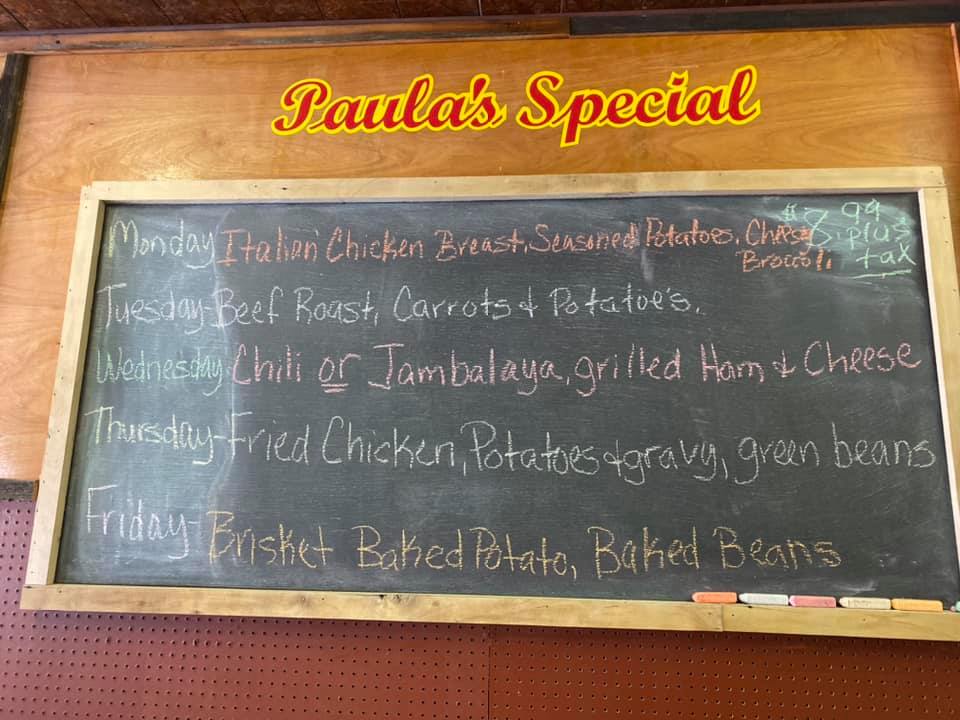 Paula's Special
Monday Italian Chicken Breast, Seasoned Potatoes, Cheese
Broccoli
$8.99
plus
tax
Tuesday-Beef Roast, Carrots & Potatoe's.
Wednesday-Chili or Jambalaya, grilled Ham & Cheese
Thursday-Fried Chicken, Potatoes & gravy, green beans
Friday- Brisket Baked Potato, Baked Beans